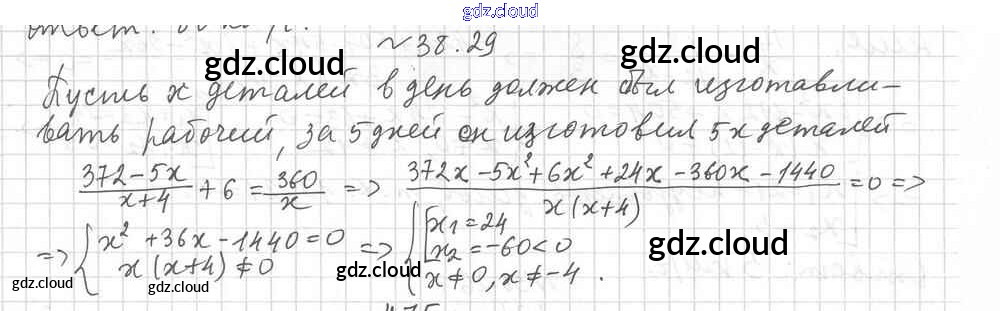 gdz.cloud
ответ:
№38.29
gdz.cloud
Пусть x деталей в день должен был изготавли-
вать рабочий, за 5 дней он изготовил 5x деталей
(372-5x)/(x+4) + 6 = 360/x => (372x-5x²+6x²+24x-360x-1440)/(x(x+4)) = 0 =>
=> { x²+36x-1440=0 => { [ x₁=24
x₂=-60<0
x(x+4)≠0 x≠0, x≠-4.
gdz.cloud
gdz.cloud
gdz.cloud
gdz.cloud
gdz.cloud
gdz.cloud